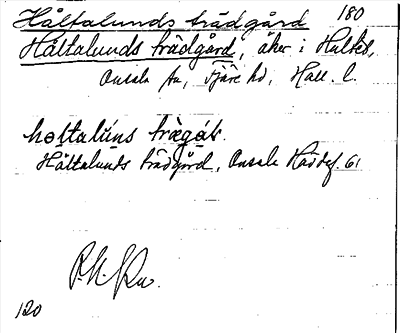 Håltalunds trädgård 180
Håltalunds trädgård, åker i Hulted,
Onsala sn, Fjäre hd, Hall. l.
hɷstalúns trægás.
Håltalunds trädgård, Onsala Häddef. 61
120